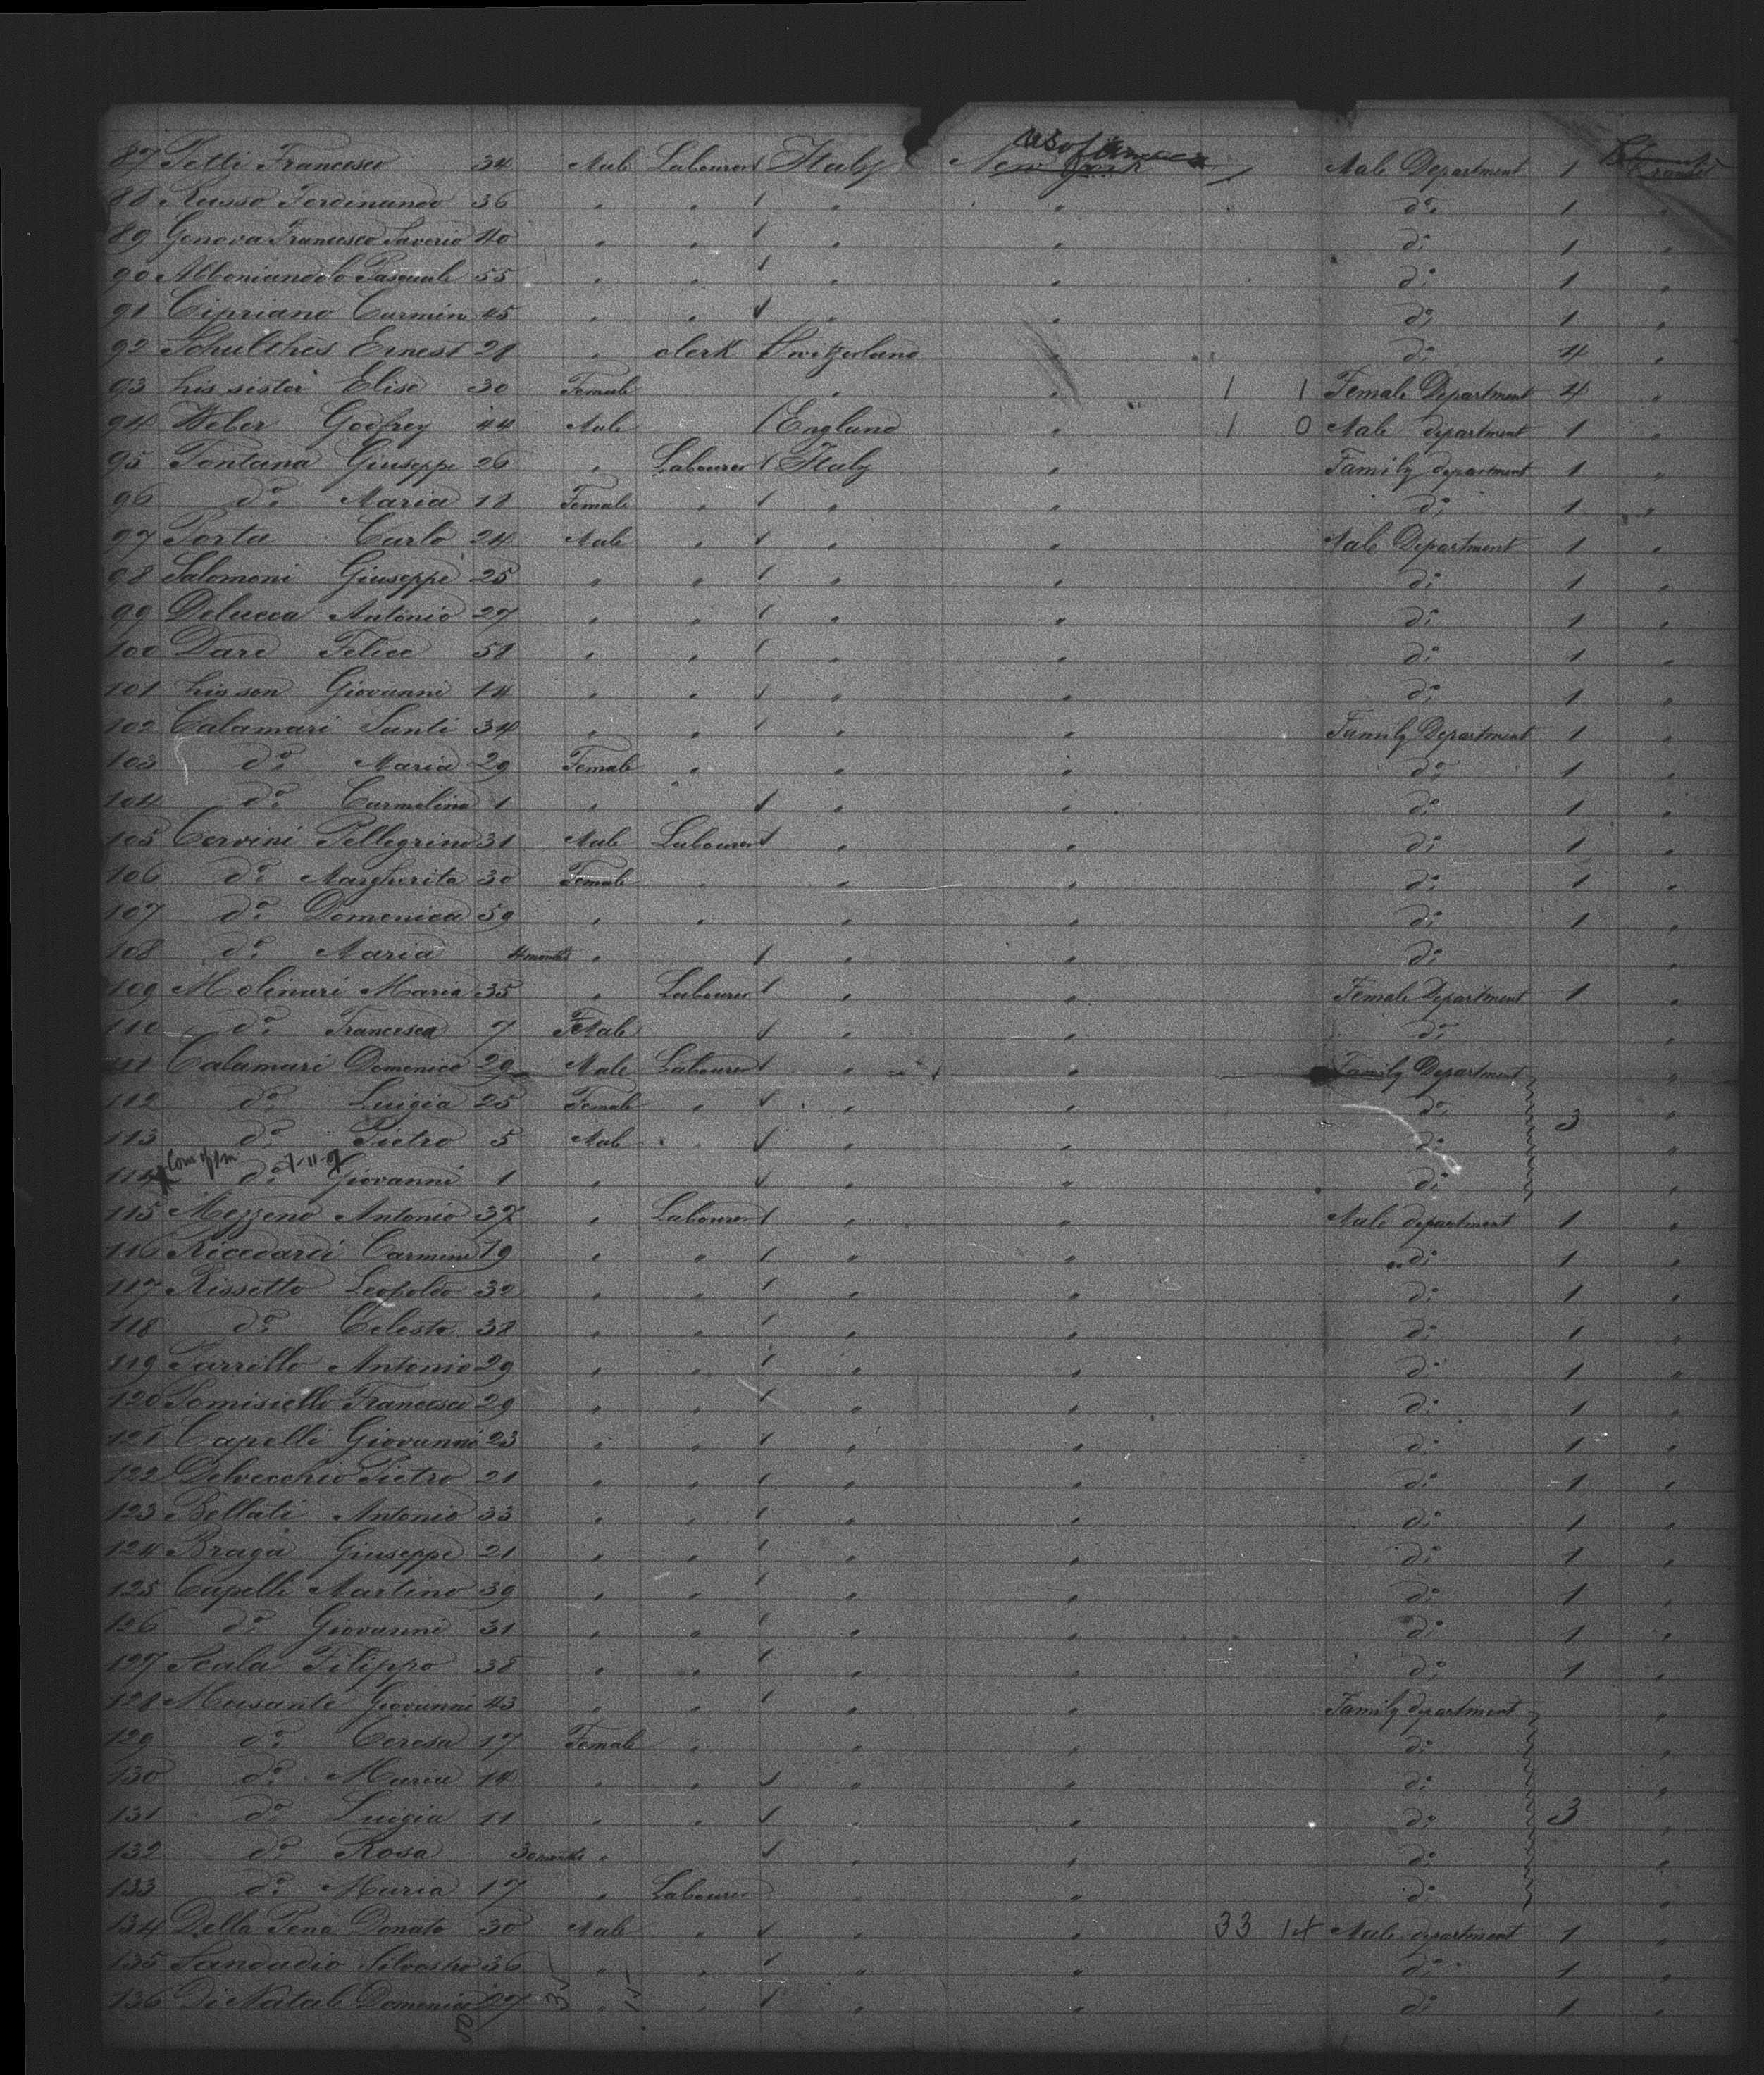 US of America
87 Petti Francesco 34 Male Labourer Italy New York Male Department 1
88 Russo Ferdinando 36 " " " " do 1 "
89 Genova Francesco Saverio 40 " " " " do 1 "
90 Pasquale 55 " " " " do 1 "
91 Cipriano Carmine 45 " " " " do 1 "
92 Schulthes Ernest 28 " clerk Switzerland " do 4 "
93 his sister Elise 30 Female " " 1 1 Female Department 4 "
94 Weber Godfrey 44 Male England " 1 0 Male department 1 "
95 Fontana Giuseppe 26 " Labourer Italy " Family department 1 "
96 do Maria 18 Female " " " do 1 "
97 Porta Carlo 24 Male " " " Male Department 1 "
98 Salomoni Giuseppe 25 " " " " do 1 "
99 Delucca Antonio 27 " " " " do 1 "
100 Dare Felice 51 " " " " do 1 "
101 his son Giovanni 14 " " " " do 1 "
102 Calamari Santi 34 " " " " Family Department 1 "
103 do Maria 29 Female " " " do 1 "
104 do Carmelina 1 " " " " do 1 "
105 Cervini Pellegrino 31 Male Labourer " " do 1 "
106 do Margherita 30 Female " " " do 1 "
107 do Domenica 59 " " " " do 1 "
108 do Maria 4 months " " " do "
109 Molinari Maria 35 " Labourer " " Female Department 1 "
110 do Francesca 7 " " do "
111 Calamari Domenico 29 Male Labourer " " Family Department "
112 do Luigia 25 Female " " " do 3 "
113 do Pietro 5 Male " " " do "
7-11-
114 X do Giovanni 1 " " " do "
115 Mezzeno Antonio 37 " Labourer " " Male department 1 "
116 Riccardi Carmine 19 " " " " do 1 "
117 Rissetto Leopoldo 32 " " " " do 1 "
118 do Celeste 38 " " " " do 1 "
119 Tarrillo Antonio 29 " " " " do 1 "
120 Tomisiello Francesco 29 " " " " do 1 "
121 Capelli Giovanni 23 " " " " do 1 "
122 Delvecchio Pietro 21 " " " " do 1 "
123 Bellati Antonio 33 " " " " do 1 "
124 Braga Giuseppe 21 " " " " do 1 "
125 Capelli Martino 39 " " " " do 1 "
126 do Giovanni 31 " " " " do 1 "
127 Scala Filippo 38 " " " " do 1 "
128 Musante Giovanni 43 " " " " Family department "
129 do Teresa 17 Female " " " do "
130 do Maria 14 " " " " do "
131 do Luigia 11 " " " " do 3 "
132 do Rosa 3 months " " " do "
133 do Maria 17 " Labourer " do "
134 Della Pena Donato 30 Male " " " 33 14 Male department 1 "
135 Sandadio Silvestro 36 " " " " do 1 "
136 Di Natale Domenico 27 " " " " do 1 "